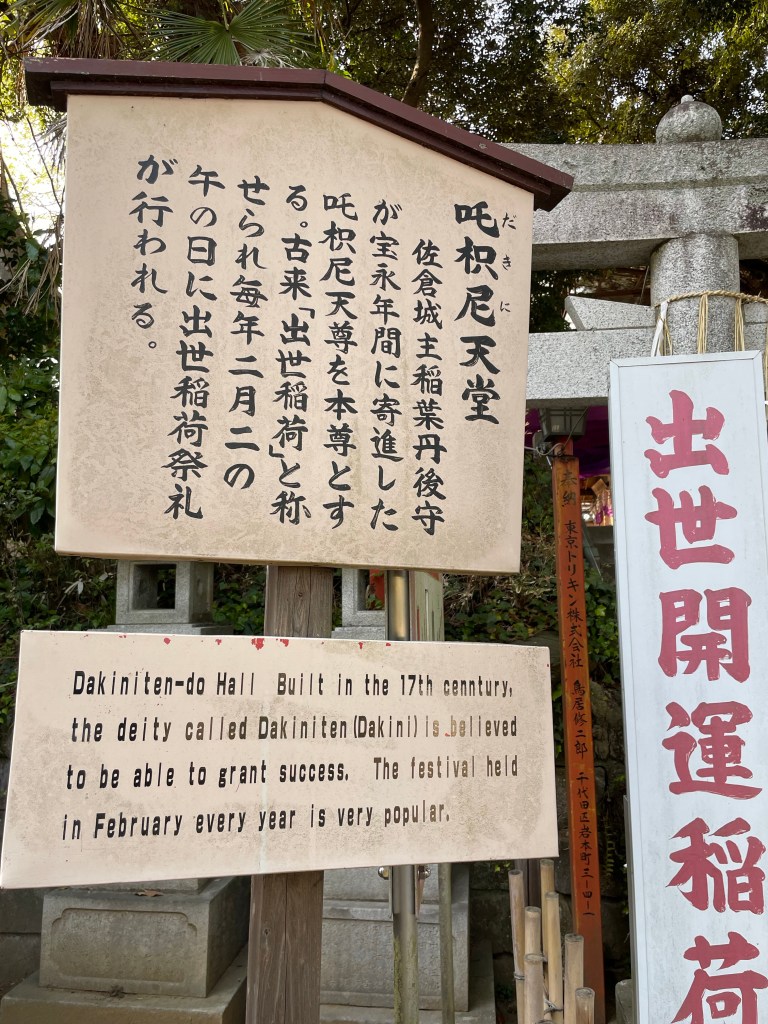 だきに
吒枳尼天堂
佐倉城主稲葉丹後守
が宝永年間に寄進した
吒枳尼天尊を本尊とす
る。古来「出世稲荷」と称
せられ毎年二月二の
午の日に出世稲荷祭礼
が行われる。
Dakiniten-do Hall Built in the 17th cenntury,
the deity called Dakiniten(Dakini) is believed
to be able to grant success. The festival held
in February every year is very popular.
奉納 東京トリキン株式会社 鳥居修二郎 千代田区岩本町三-四-一
出世開運稲荷